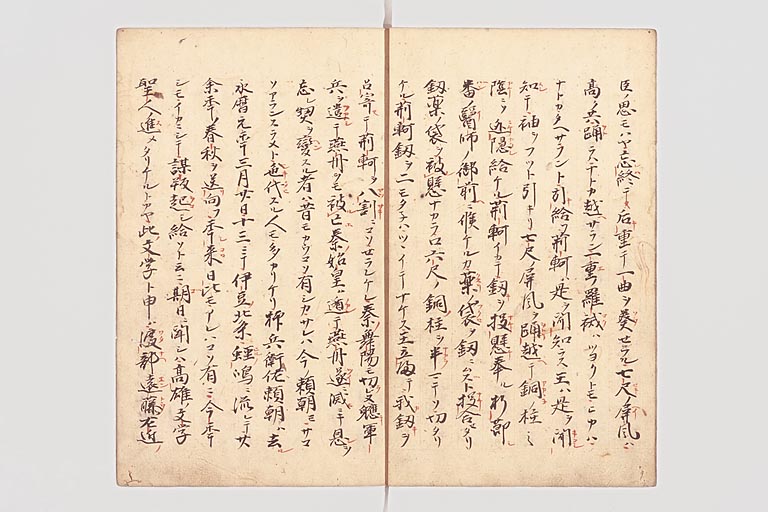 臣ノ思モハヤ忘終テ后重テ一曲ヲ奏セラル七尺ノ屏風ハ
高ノ兵踊ラスナトカ越サラン一重ノ羅袂ハツヨリトモヒカハ
ナトカタヘサラント引給ヲ荊軻ハ是ヲ聞知ラス王ハ是ヲ聞
知テ袖ヲフツト引キリ七尺ノ屏風ヲ踊越テ銅柱ニ
陰ニ逃隠給ケル荊軻イカテ釼ヲ投懸奉ル折節
番ノ醫師ノ御前ニ候ケルカ藥ノ袋ヲ釼ニハト投合タリ
釼藥袋ヲ被懸ナカラ口六尺ノ銅柱ヲ半ニテソ切タリ
ケル荊軻釼ヲ二モタネハツヽイテナケス王立歸テ我釼ヲ
召寄テ荊軻ヲ八割ニコソセラレケレ秦舞陽モ切レヌ軈軍
兵ヲ遣テ燕丹ヲモ被亡秦始皇ハ遁テ燕丹遂ニ滅ニキ恩ヲ
忘レ契ヲ變スル者ハ昔モカウコソ有シカサレハ今ノ頼朝モサコ
ソアランスラメト色代スル人モ多カリケリ抑兵衛佐頼朝ハ去
永暦元年三月廿日十三ニテ伊豆北条蛭嶋ニ流レテ廿
余年ノ春秋ヲ送向フ年来日比モアレハコソ有ニ今年
シモイカニシテ謀叛起シ給ソト云ニ期日ニ聞レハ高雄文学
聖人進メリケルトカヤ此文学ト申ハ渡部遠藤左近ノ